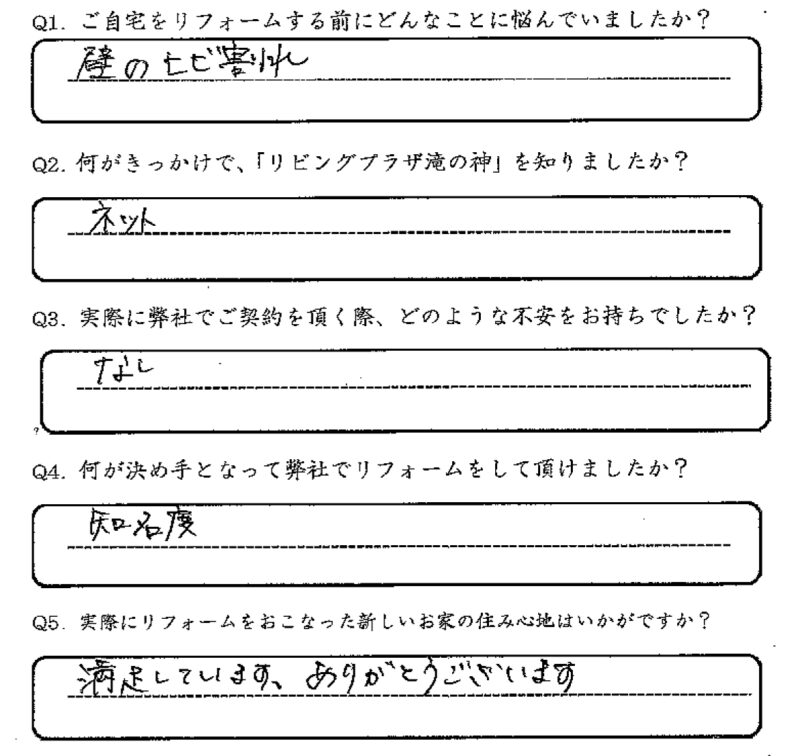 Q1. ご自宅をリフォームする前にどんなことに悩んでいましたか？
壁のヒビ割れ
Q2. 何がきっかけで、「リビングプラザ滝の神」を知りましたか？
ネット
Q3. 実際に弊社でご契約を頂く際、どのような不安をお持ちでしたか？
なし
Q4. 何が決め手となって弊社でリフォームをして頂けましたか？
知名度
Q5. 実際にリフォームをおこなった新しいお家の住み心地はいかがですか？
満足しています、ありがとうございます